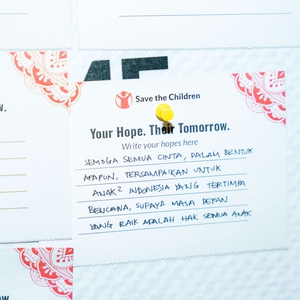 Save the Children
Your Hope. Their Tomorrow.
Write your hopes here
SEMOGA SEMUA CINTA, DALAM BENTUK
APAPUN, TERSAMPAIKAN UNTUK
ANAK² INDONESIA YANG TERTIMPA
BENCANA, SUPAYA MASA DEPAN
YANG BAIK ADALAH HAK SEMUA ANAK
w.